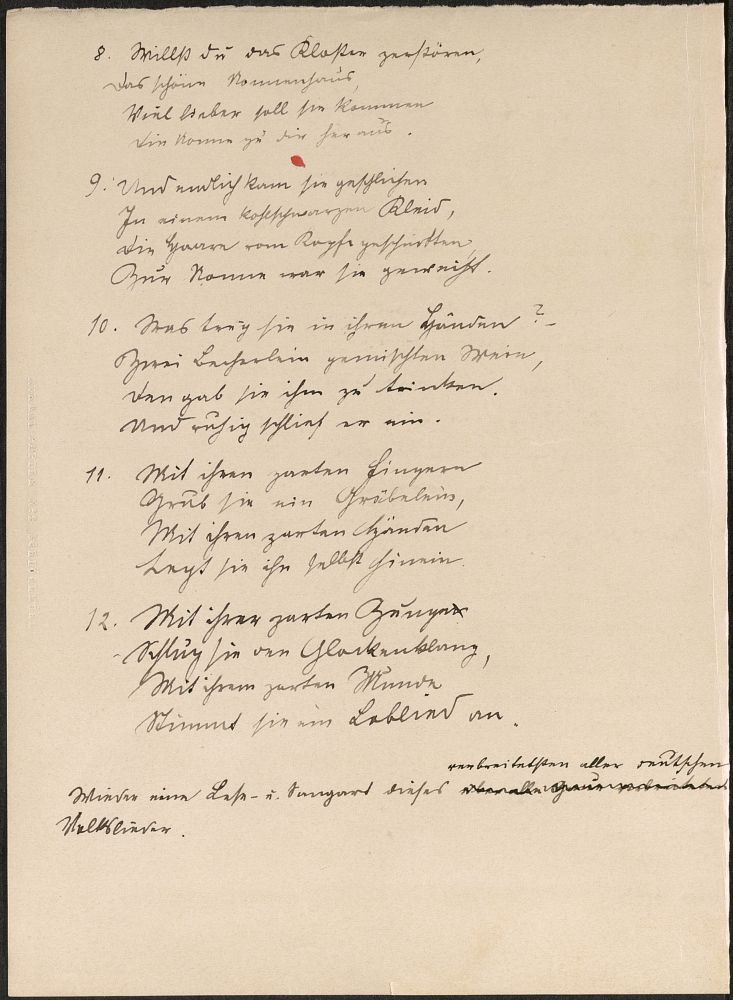 8. Willst du das Kloster zerstören,
Das schöne Nonnenhaus,
Viel lieber soll sie kommen
Die Nonne zu dir heraus.
9. Und endlich kam sie geschlichen
In einem kohlschwarzen Kleid,
Die Haare vom Kopfe geschnitten,
Zur Nonne war sie geweiht.
10. Was trug sie in ihren Händen? –
Zwei Becherlein gemischten Wein,
Den gab sie ihm zu trinken.
Und ruhig schlief er ein.
11. Mit ihren zarten Fingern
Grub sie ein Gräbelein,
Mit ihren zarten Händen
Legt sie ihn selbst hinein.
12. Mit ihrer zarten Zunge
Schlug sie den Glockenklang,
Mit ihrem zarten Munde
Stimmt sie ein Loblied an.
verbreitetsten aller deutschen
Wieder eine Lese- u. Sangart dieses
Volkslieder.